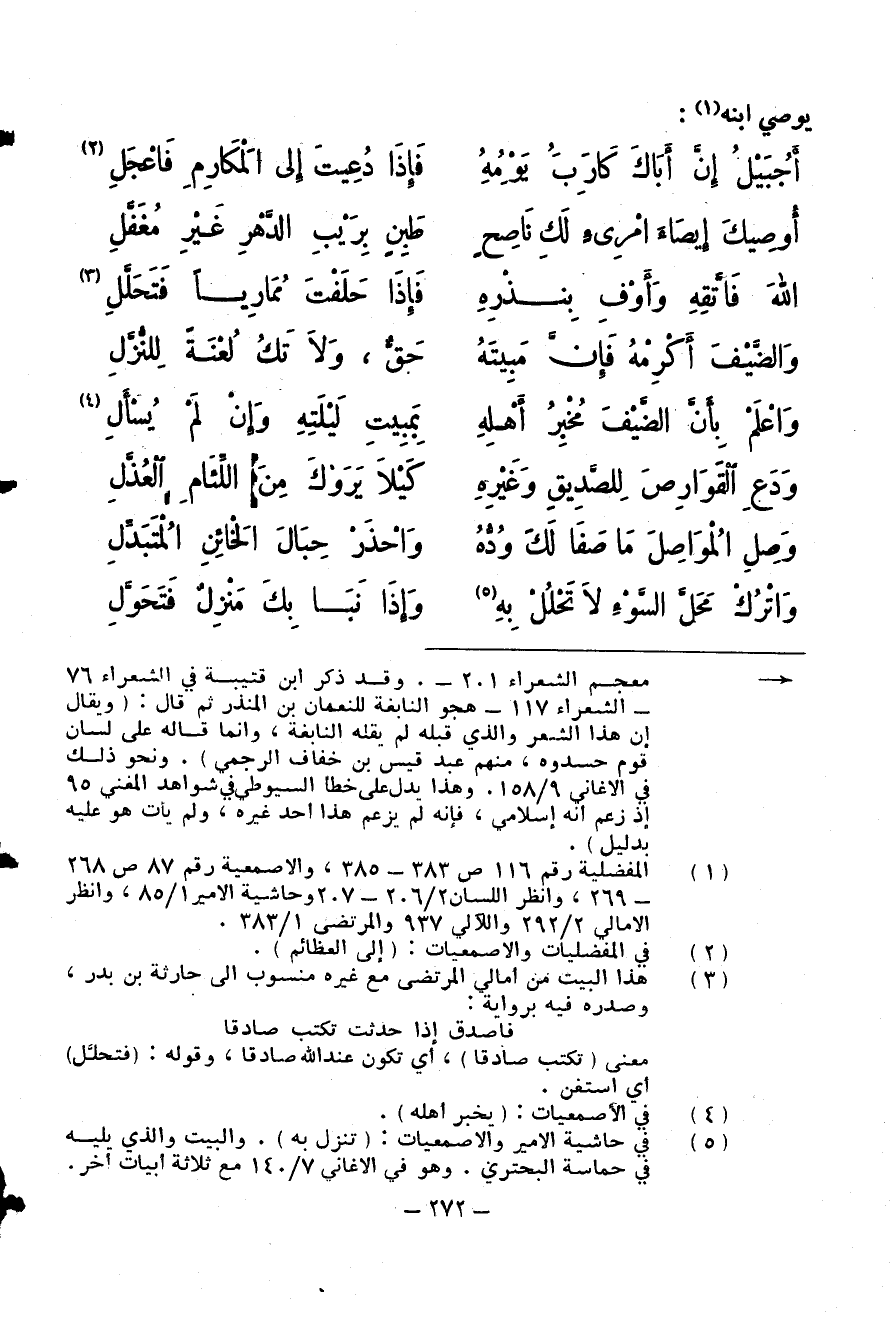 يوصي ابنه(١) :
أَجُبَيْلُ إِنَّ أَبَاكَ كَارَبَ يَوْمُهُ فَإِذَا دُعِيتَ إِلى الْمَكَارِمِ فَاعْجَلِ(٢)
أُوصِيكَ إِيصَاءَ امْرِىءٍ لَكَ نَاصِحٍ طَبِنٍ بِرَيْبِ الدَّهْرِ غَيْرِ مُغَفَّلِ
اللهَ فَاتَّقِهِ وَأَوْفِ بِنَذْرِهِ فَإِذَا حَلَفْتَ مُمَارِياً فَتَحَلَّلِ(٣)
وَالضَّيْفَ أَكْرِمْهُ فَإِنَّ مَبِيتَهُ حَقٌّ ، وَلاَ تَكُ لُعْنَةً لِلنُّزَّلِ
وَاعْلَمْ بِأَنَّ الضَّيْفَ مُخْبِرُ أَهْلِهِ بِمَبِيتِ لَيْلَتِهِ وَإِنْ لَمْ يُسْأَلِ(٤)
وَدَعِ ٱلْقَوَارِصَ لِلصَّدِيقِ وَغَيْرِهِ كَيْلاَ يَرَوْكَ مِنَ اللِّئَامِ ٱلْعُذَّلِ
وَصِلِ الْمُوَاصِلَ مَا صَفَا لَكَ وُدُّهُ وَاحْذَرْ حِبَالَ الْخَائِنِ الْمُتَبَدِّلِ
وَاتْرُكْ مَحَلَّ السَّوْءِ لاَ تَحْلُلْ بِهِ(٥) وَإِذَا نَبَا بِكَ مَنْزِلٌ فَتَحَوَّلِ
← معجم الشعراء ٢٠١ – . وقد ذكر ابن قتيبة في الشعراء ٧٦
– الشعراء ١١٧ – هجو النابغة للنعمان بن المنذر ثم قال : ( ويقال
إن هذا الشعر والذي قبله لم يقله النابغة ، وانما قاله على لسان
قوم حسدوه ، منهم عبد قيس بن خفاف الرجمي ) . ونحو ذلك
في الاغاني ١٥٨/٩ . وهذا يدل على خطأ السيوطي في شواهد المغني ٩٥
إذ زعم أنه إسلامي ، فإنه لم يزعم هذا احد غيره ، ولم يأت هو عليه
بدليل ) .
(١) المفضلية رقم ١١٦ ص ٣٨٣ – ٣٨٥ ، والاصمعية رقم ٨٧ ص ٢٦٨
– ٢٦٩ ، وانظر اللسان ٢٠٦/٢ – ٢٠٧ وحاشية الامير ٨٥/١ ، وانظر
الامالي ٢٩٢/٢ واللآلي ٩٣٧ والمرتضى ٣٨٣/١ .
(٢) في المفضليات والاصمعيات : ( إلى العظائم ) .
(٣) هذا البيت من أمالي المرتضى مع غيره منسوب الى حارثة بن بدر ،
وصدره فيه برواية :
فاصدق إذا حدثت تكتب صادقا
معنى ( تكتب صادقا ) ، أي تكون عندالله صادقا ، وقوله : (فتحلَّل)
أي استغن .
(٤) في الأصمعيات : ( يخبر أهله ) .
(٥) في حاشية الامير والاصمعيات : ( تنزل به ) . والبيت والذي يليه
في حماسة البحتري . وهو في الاغاني ١٤٠/٧ مع ثلاثة أبيات أخر .
– ٢٧٢ –